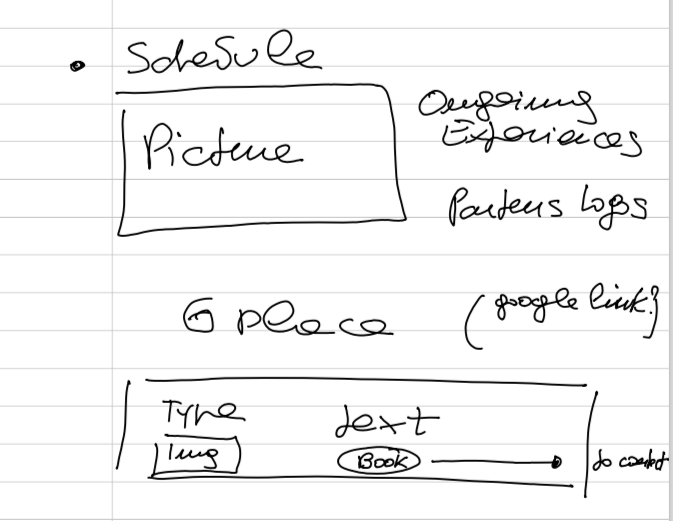 Schedule
Picture
Ongoing
Experiences
Partners logos
G place (google link?)
Type text
Img Book
to contact